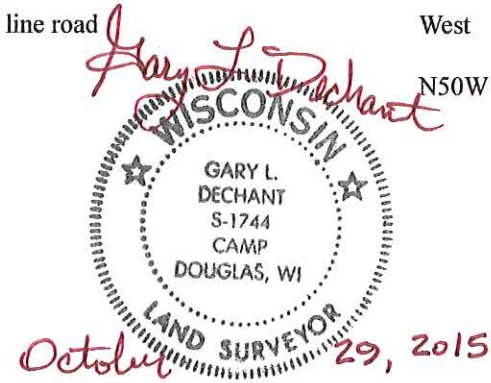 line road West
Gary L. Dechant
N50W
WISCONSIN
GARY L.
DECHANT
S-1744
CAMP
DOUGLAS, WI
LAND SURVEYOR
October 29, 2015